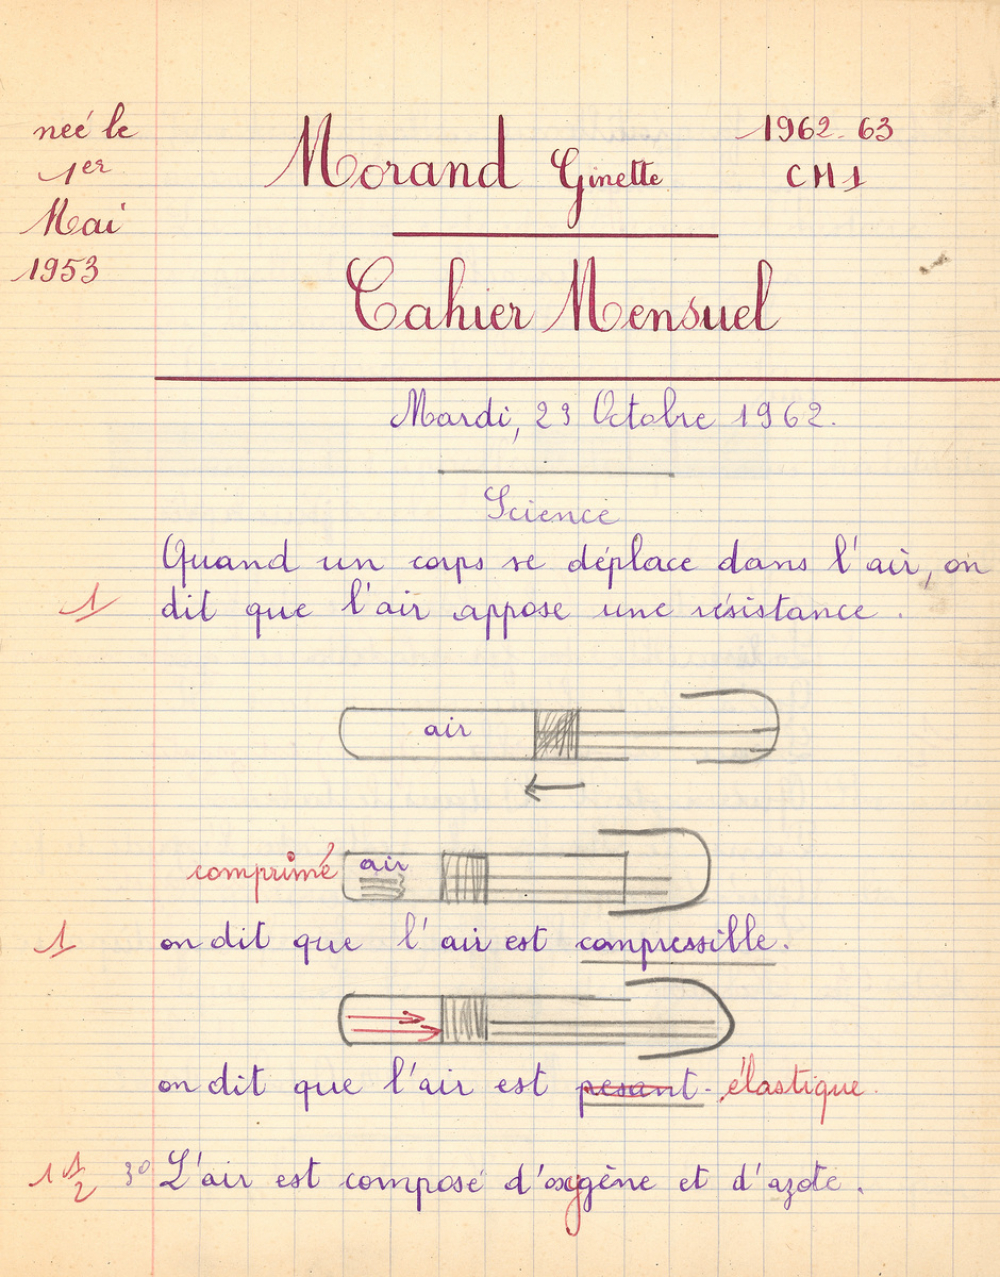 neé le
1er
Mai
1953
Morand Ginette
1962-63
CM1
Cahier Mensuel
Mardi, 23 Octobre 1962.
Science
Quand un corps se déplace dans l'air, on
1 dit que l'air appose une résistance.
air
comprimé air
1 on dit que l'air est compressible.
on dit que l'air est pesant - élastique.
1 1/2 3° L'air est composé d'oxygène et d'azote.